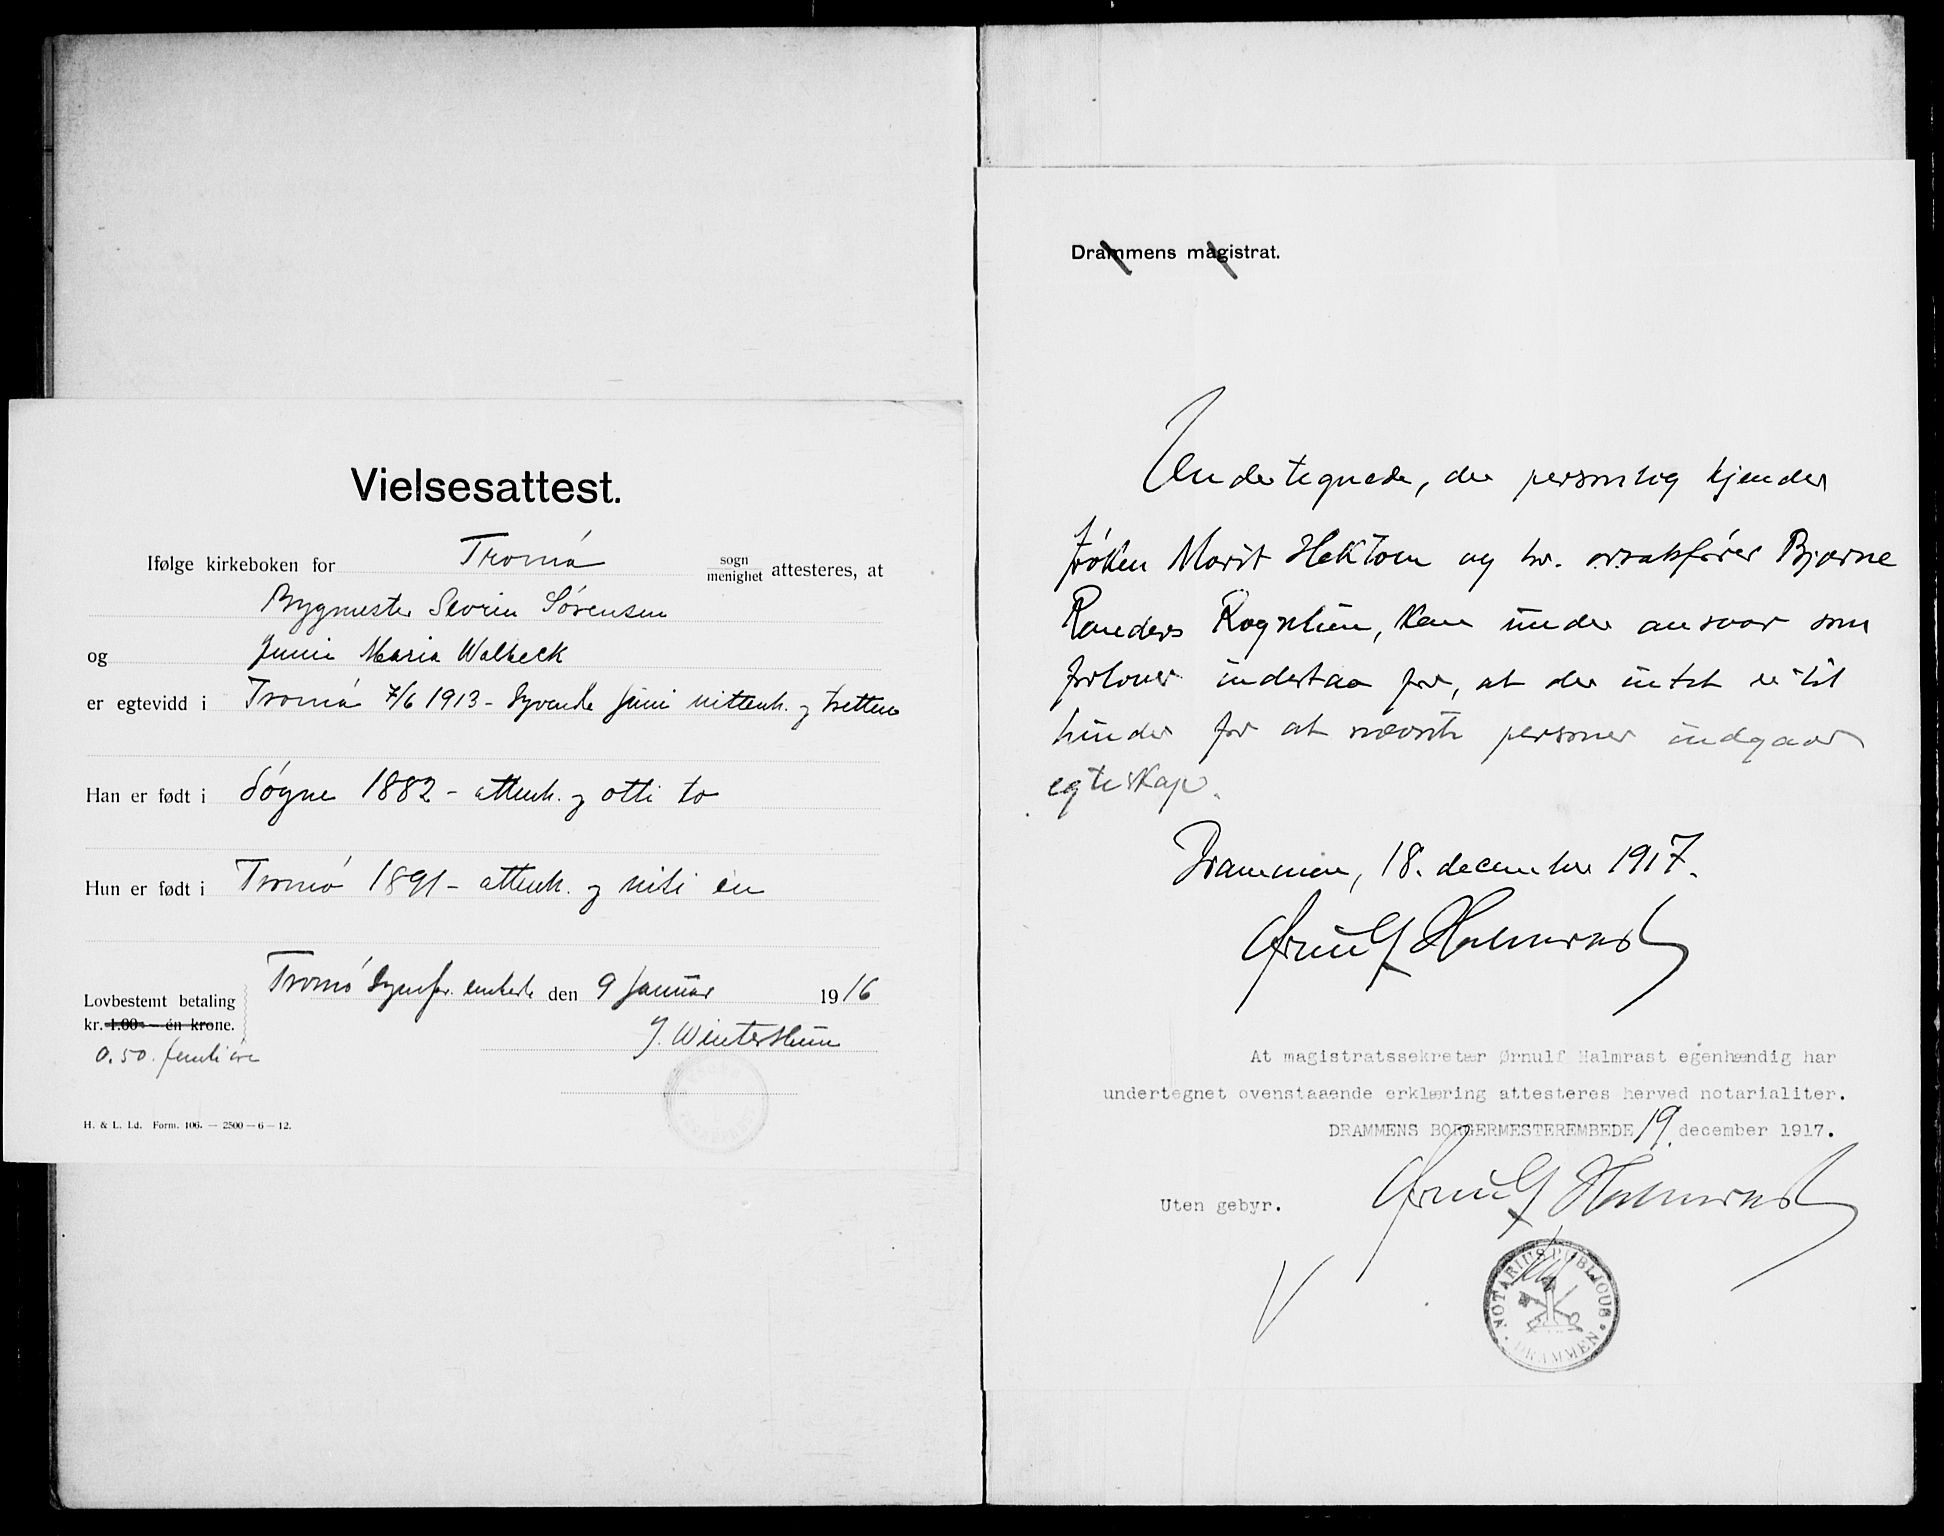 Vielsesattest.
Ifølge kirkeboken for Tromø sogn menighet attesteres, at
Bygmester Severin Sørensen
og Maria Walbeck
er egtevidd i Tromø 7/6 1913 - Syvende Juni nittenh. og tretten
Han er født i Søgne 1882 - attenh. og otti to
Hun er født i Tromø 1891 - attenh. og niti en
Tromø den 9 Januar 1916
Lovbestemt betaling
kr. 1.00 — én krone.
0.50. femti øre
H. & L. Ld. Form. 106. — 2500 — 6 — 12.
Drammens magistrat.
Undertegnede, der personlig kjender
frøken Marit Hektoen og hr. orsakfører Bjarne
Randers Rognlien, kan under ansvar som
forlover indestaa for, at der intet er til
hinder for at nævnte personer indgaar
egteskap.
Drammen, 18. december 1917.
Ørnulf Halmrast
At magistratssekretær Ørnulf Halmrast egenhændig har
undertegnet ovenstaaende erklæring attesteres herved notarialiter.
DRAMMENS BORGERMESTEREMBEDE 19. december 1917.
Ørnulf Halmrast
Uten gebyr.
NOTARIUS PUBLICUS DRAMMEN